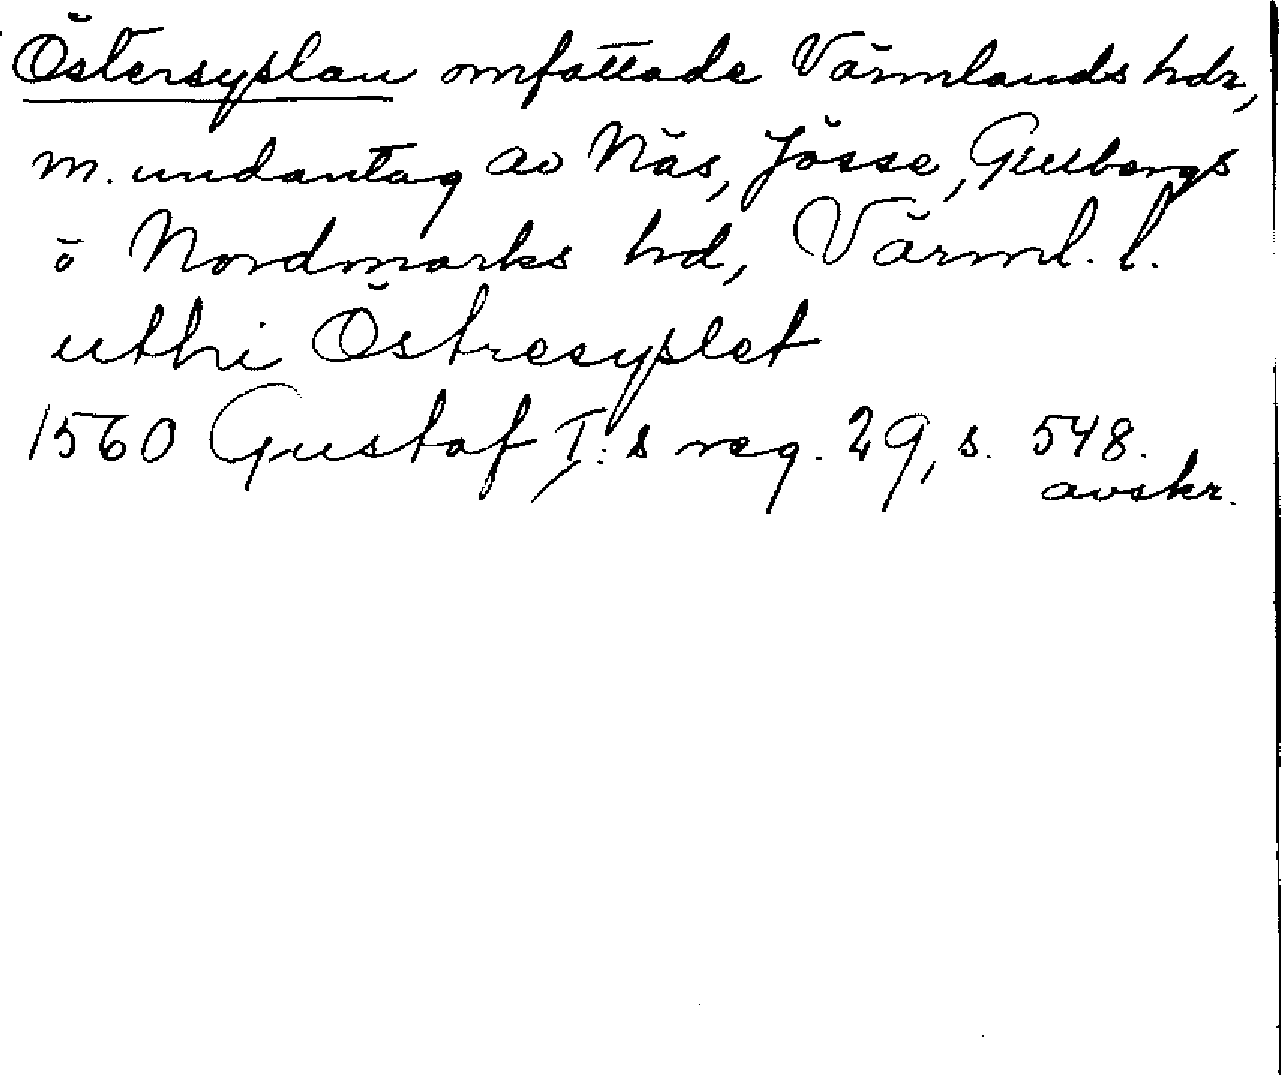 Östersysslan omfattade Värmlands hdr,
m. undantag av Näs, Jösse, Gillbergs
o Nordmarks hd, Värml. l.
utthi Östresyslet
1560 Gustaf I:s reg. 29, s. 548.
avskr.